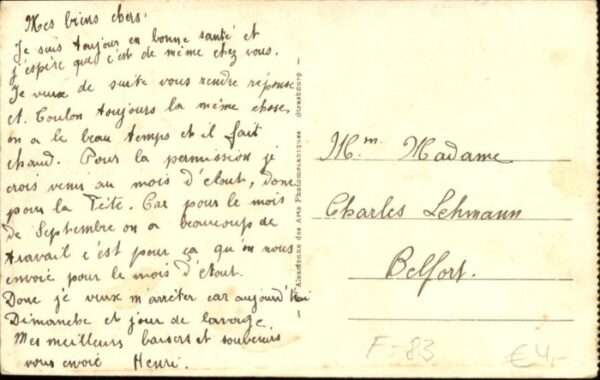 Mes biens chers.
Je suis toujour en bonne santé et
j'espire que c'est de même chez vous.
Je veux de suite vous rendre réponse
et Toulon toujours la même chose,
on a le beau temps et il fait
chaud. Pour la permission je
crois venir au mois d'Aout, donc
pour la Fête. Car pour le mois
de Septembre on a beaucoup de
travail c'est pour ça qu'on nous
envoie pour le mois d'Aout.
Donc je veux m'arrêter car aujourd'hui
Dimanche et jour de lavage.
Mes meilleurs baisers et souvenirs
vous envoie Henri.
Alsacienne des Arts Photomécaniques Strasbourg
Mm. Madame
Charles Lehmann
Belfort.
F-83
€4,-